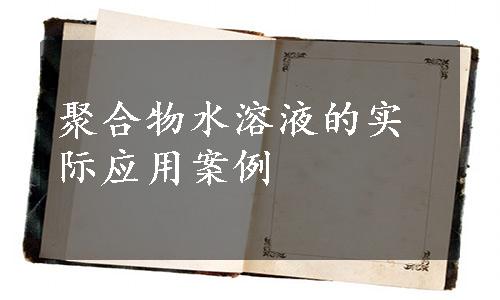 聚合物水溶液的实
际应用案例